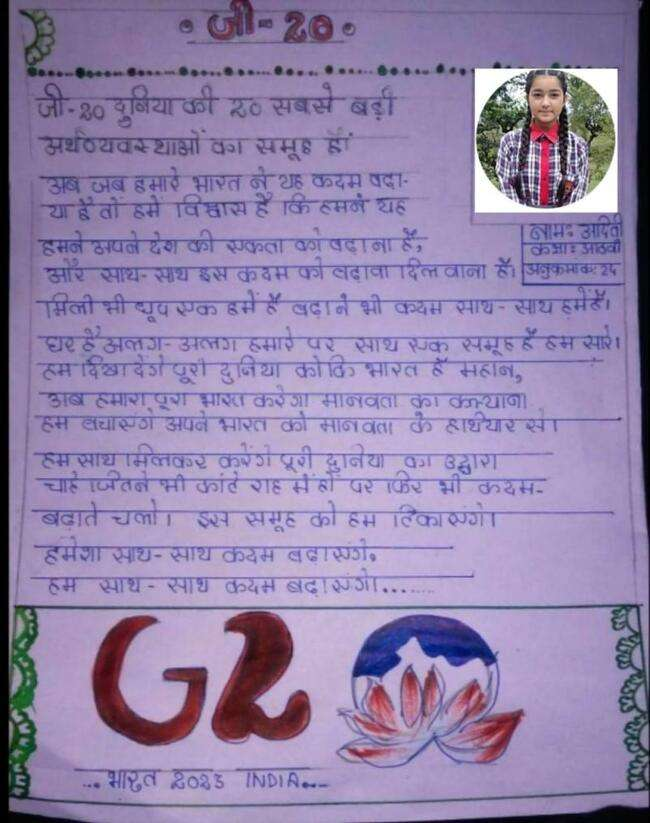 जी-20
जी-20 दुनिया की 20 सबसे बड़ी
अर्थव्यवस्थाओं का समूह है।
अब जब हमारे भारत ने यह कदम बढा-
या है तो हमें विश्वास है कि हमने यह
हमने अपने देश की एकता को बढाना है,
और साथ-साथ इस कदम को बढावा दिलवाना है।
नाम: अदिती
कक्षा: आठवीं
अनुक्रमांक: 24
मिली भी धूप एक हमें है बढाने भी कदम साथ-साथ हमें है।
घर है अलग-अलग हमारे पर साथ एक समूह है हम सारे।
हम दिखा देंगे पूरी दुनिया को कि भारत है महान,
अब हमारा पूरा भारत करेगा मानवता का कल्याण
हम बचाएंगे अपने भारत को मानवता के हथियार से।
हम साथ मिलकर करेंगे पूरी दुनिया का उद्धार।
चाहे जितने भी कांटे राह में हों पर फिर भी कदम-
बढाते चलो। इस समूह को हम टिकाएंगे।
हमेशा साथ-साथ कदम बढाएंगे,
हम साथ-साथ कदम बढाएंगे।......
G2
... भारत 2023 INDIA...